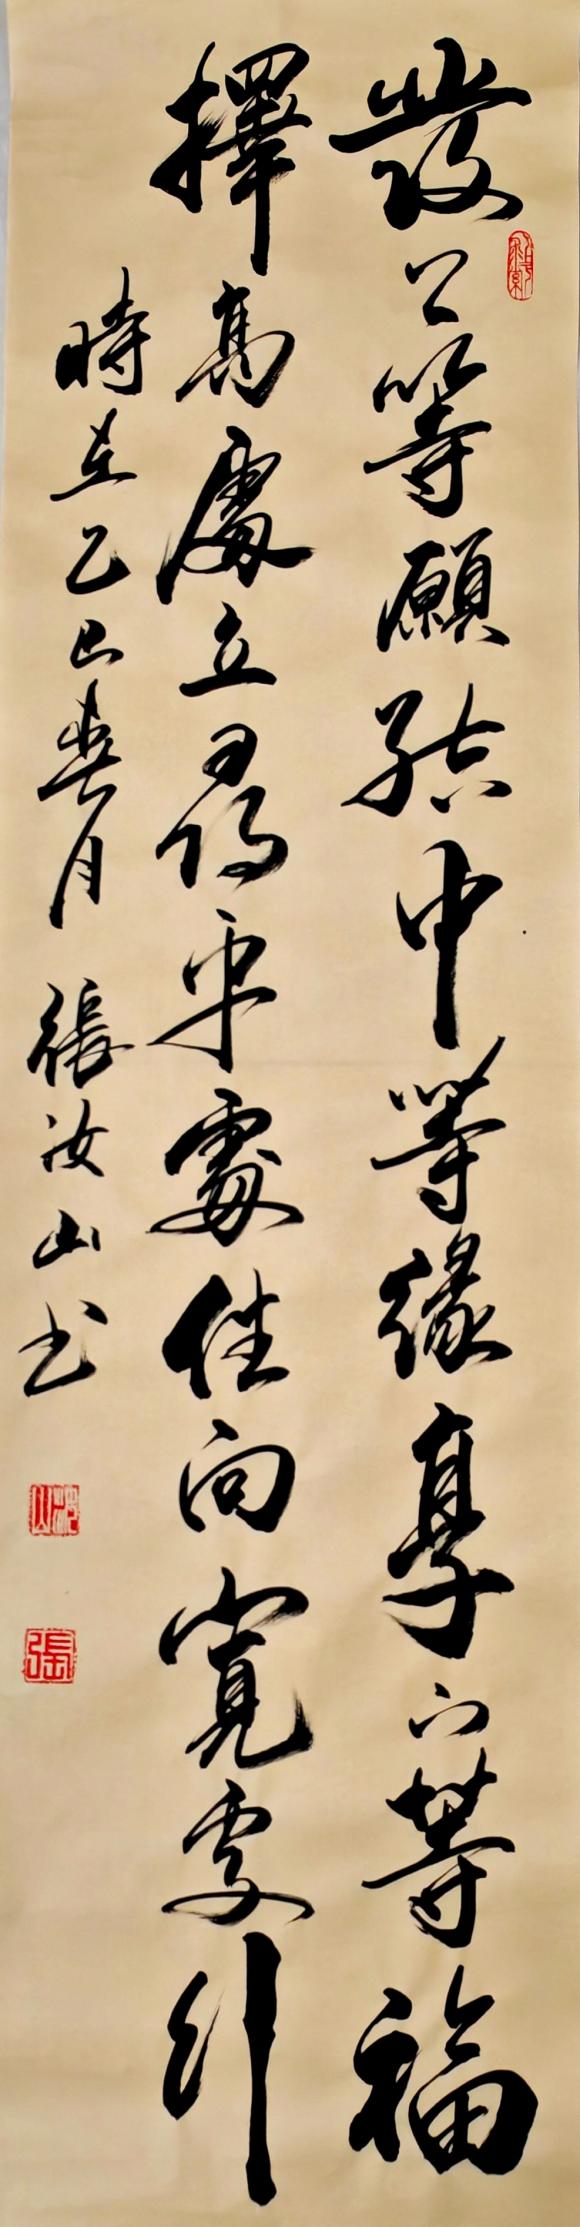 發上等願結中等緣享下等福
擇高處立尋平處住向寬處行
時在乙巳春月 張汝山書
汝山
張